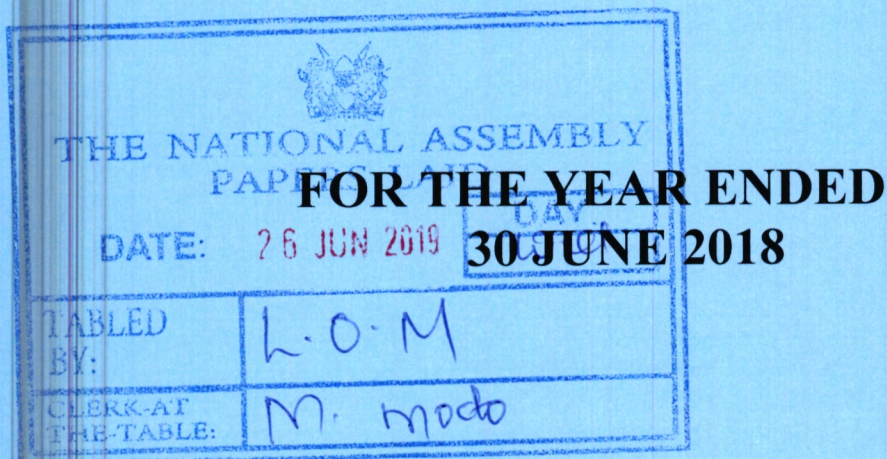 THE NATIONAL ASSEMBLY
PAPERS LAID
FOR THE YEAR ENDED
DATE: 26 JUN 2019 DAY
30 JUNE 2018
TABLED BY: L.O.M
CLERK-AT THE-TABLE: M. modo